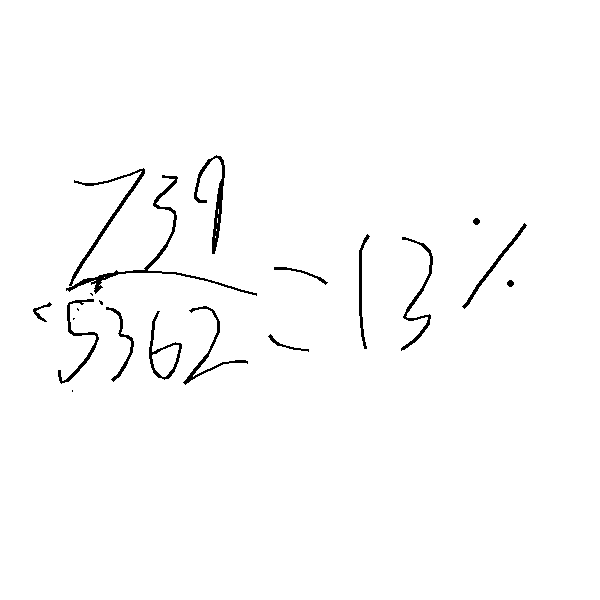 739
5362
= 13%